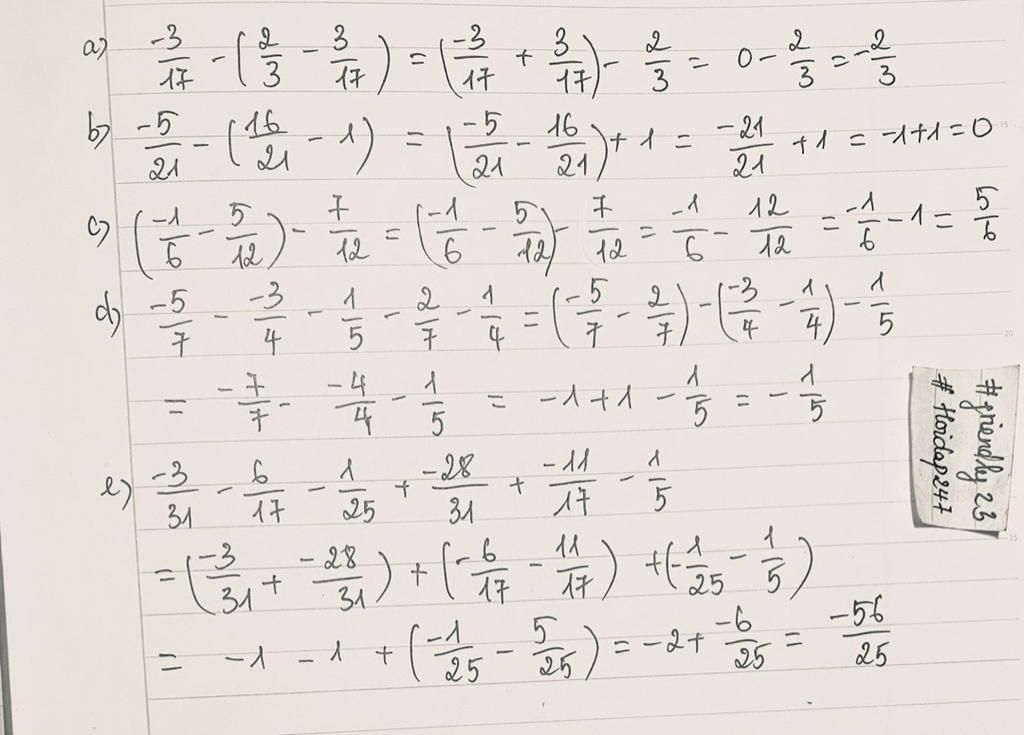 a) -3/17 - (2/3 - 3/17) = (-3/17 + 3/17) - 2/3 = 0 - 2/3 = -2/3
b) -5/21 - (16/21 - 1) = (-5/21 - 16/21) + 1 = -21/21 + 1 = -1+1 = 0
c) (-1/6 - 5/12) - 7/12 = (-1/6 - 5/12) - 7/12 = -1/6 - 12/12 = -1/6 - 1 = 5/6
d) -5/7 - -3/4 - 1/5 - 2/7 - 1/4 = (-5/7 - 2/7) - (-3/4 - 1/4) - 1/5
= -7/7 - -4/4 - 1/5 = -1+1 - 1/5 = -1/5
e) -3/31 - 6/17 - 1/25 + -28/31 + -11/17 - 1/5
= (-3/31 + -28/31) + (-6/17 - 11/17) + (-1/25 - 1/5)
= -1 - 1 + (-1/25 - 5/25) = -2 + -6/25 = -56/25
#friendly23
#hoidap247